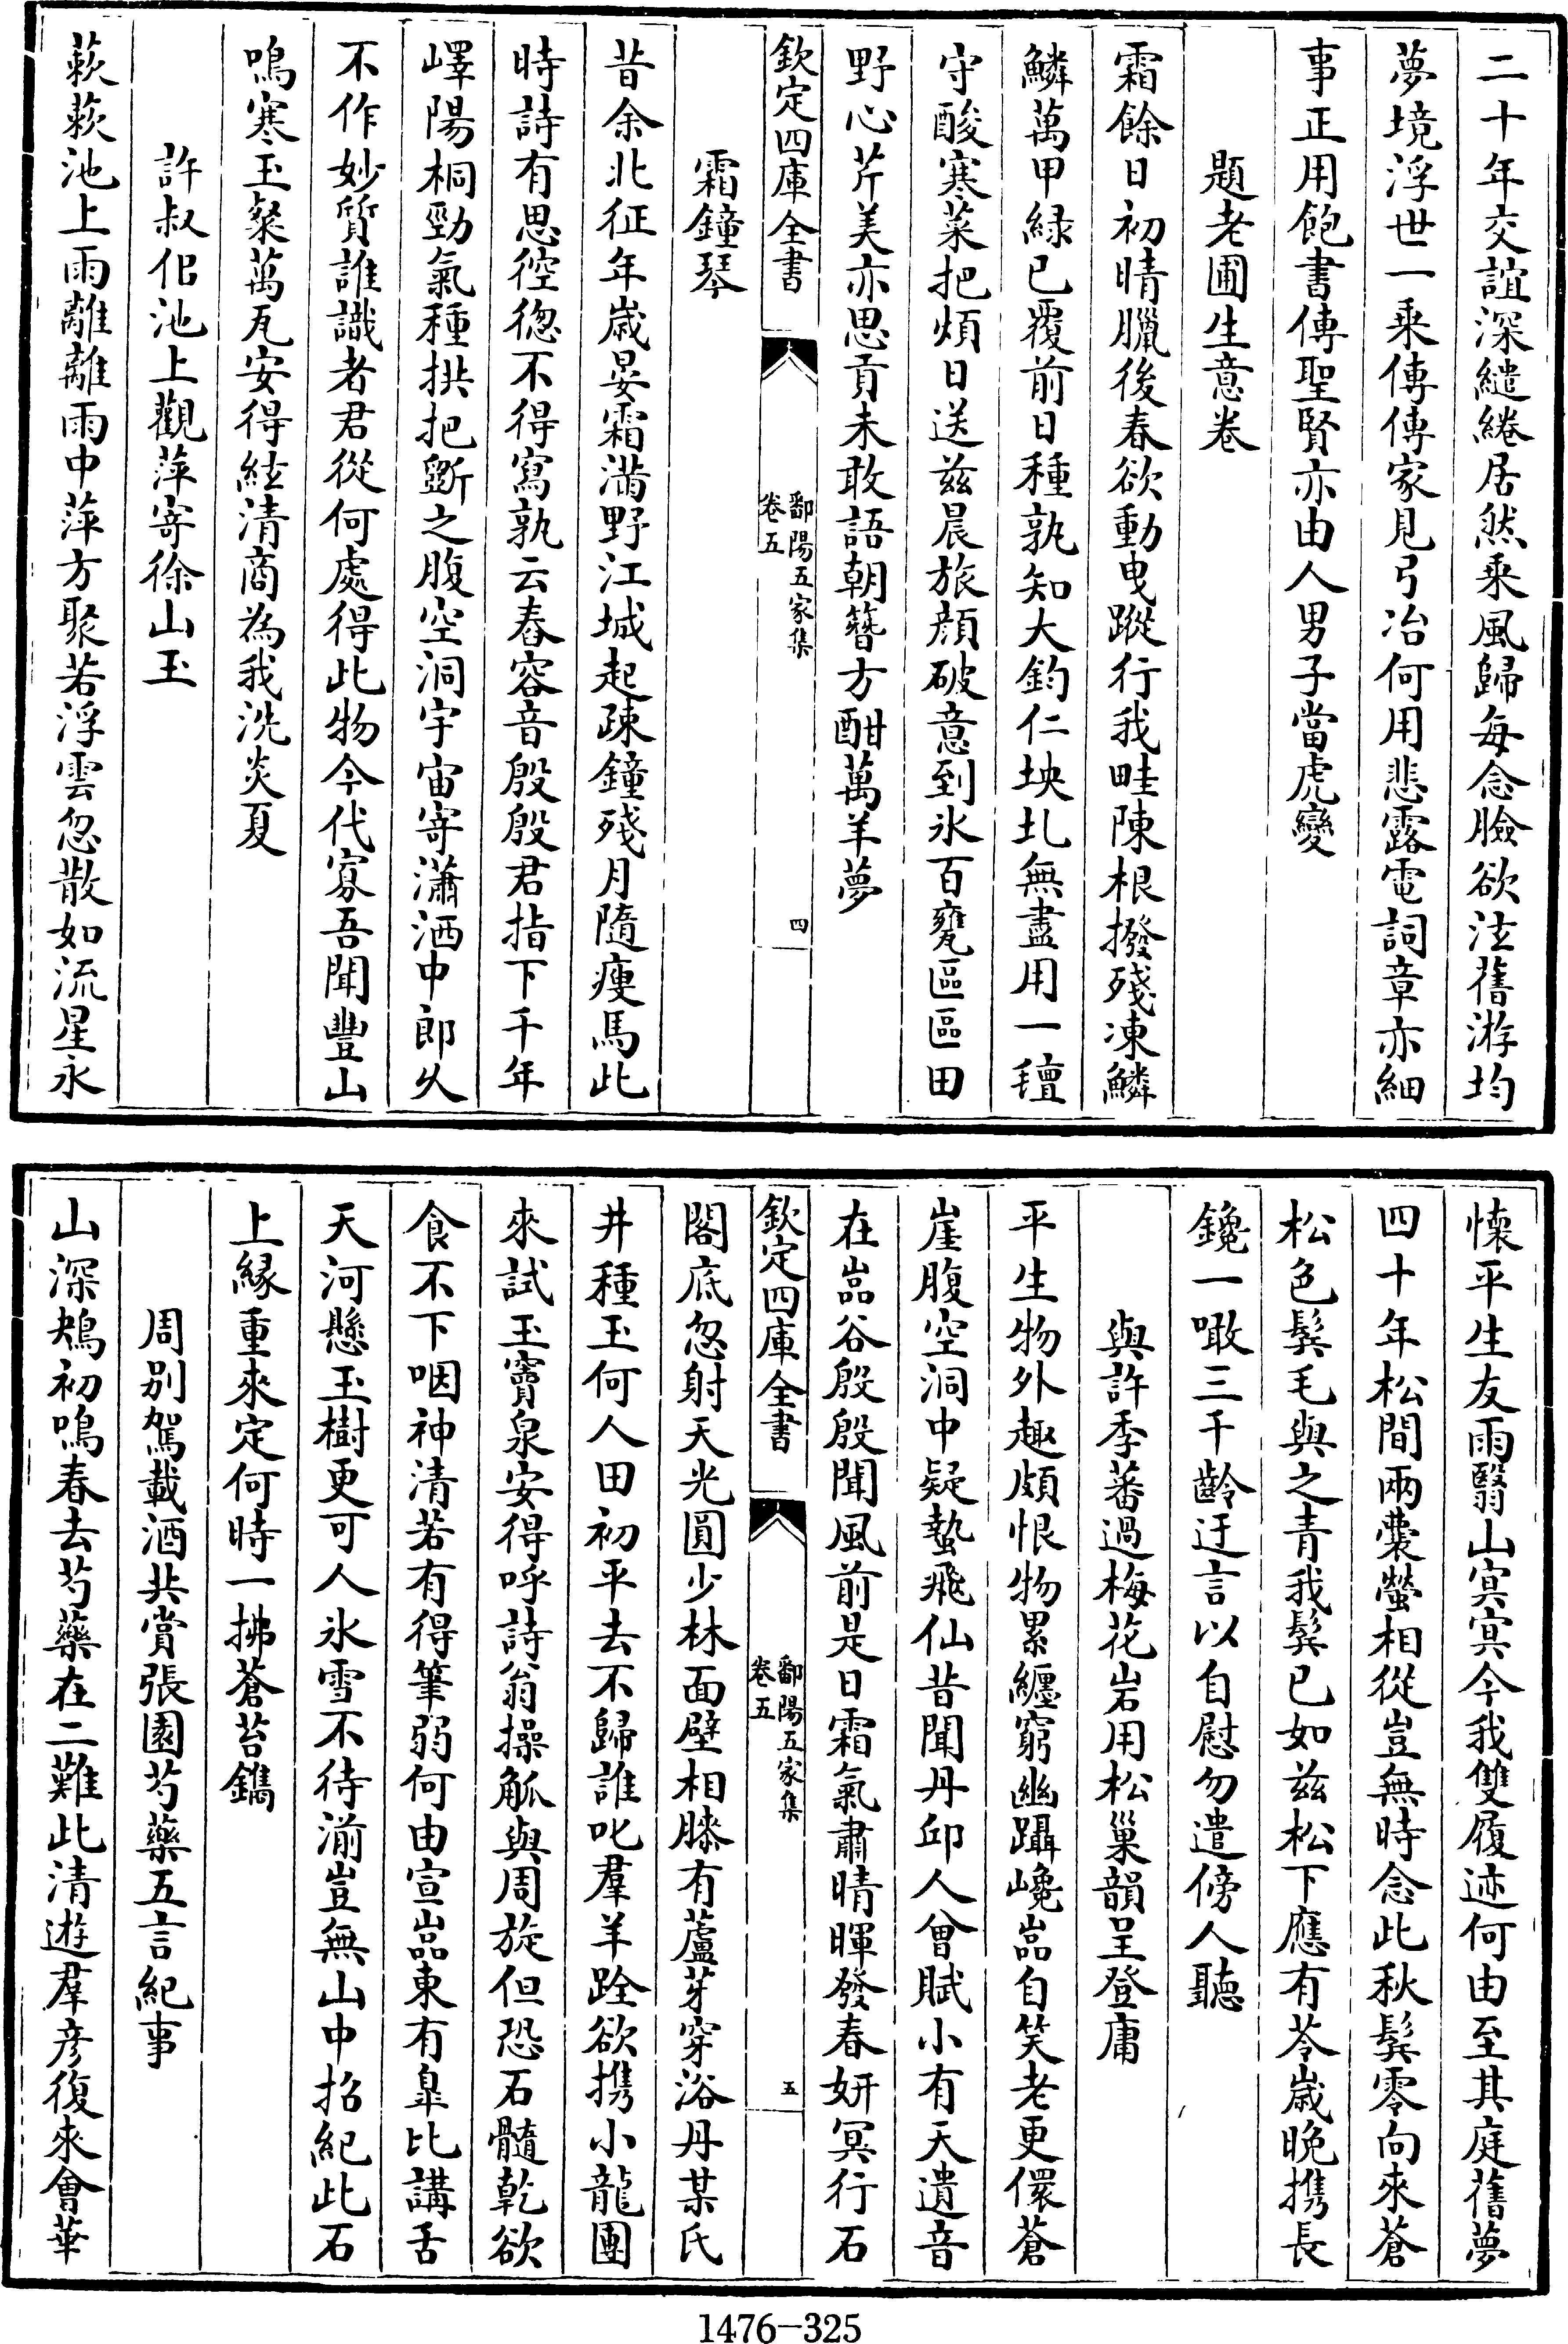 二十年交誼深繾綣居然乘風歸每念臉欲泫舊游均
夢境浮世一乘傳傳家見弓冶何用悲露電詞章亦細
事正用飽書傳聖賢亦由人男子當虎變
題老圃生意卷
霜餘日初晴臘後春欲動曳蹤行我畦陳根撥殘凍鱗
鱗萬甲緑已覆前日種孰知大鈞仁坱圠無盡用一𥡴
守酸寒菜把煩日送兹晨旅顔破意到氷百甕區區田
野心芹美亦思貢未敢語朝簪方酣萬羊夢
欽定四庫全書
鄱陽五家集
卷五
四
霜鐘琴
昔余北征年歳晏霜滿野江城起疎鐘殘月隨瘦馬此
時詩有思倥偬不得寫孰云舂容音殷殷君指下千年
嶧陽桐勁氣種拱把斵之腹空洞宇宙寄瀟洒中郎久
不作妙質誰識者君從何處得此物今代寡吾聞豐山
鳴寒玉粲萬瓦安得絃清商為我洗炎夏
許叔佀池上觀萍寄徐山玉
蔌蔌池上雨離離雨中萍方聚若浮雲忽散如流星永
懐平生友雨翳山㝠㝠今我雙履迹何由至其庭舊夢
四十年松間兩囊螢相從豈無時念此秋鬂零向來蒼
松色鬂毛與之青我鬂已如兹松下應有苓歳晩携長
鑱一噉三千齡迂言以自慰勿遣傍人聽
與許季蕃過梅花岩用松巢韻呈登庸
平生物外趣頗恨物累纒窮幽躡巉嵓自笑老更儇蒼
崖腹空洞中疑蟄飛仙昔聞丹邱人曾賦小有天遺音
在嵓谷殷殷聞風前是日霜氣肅晴暉發春妍冥行石
欽定四庫全書
鄱陽五家集
卷五
五
閣底忽射天光圓少林面壁相膝有蘆芽穿浴丹某氏
井種玉何人田初平去不歸誰叱羣羊跧欲携小龍團
來試玉竇泉安得呼詩翁操觚與周旋但恐石髓乾欲
食不下咽神清若有得筆弱何由宣嵓東有臯比講舌
天河懸玉樹更可人氷雪不待湔豈無山中招紀此石
上緣重來定何時一拂蒼苔鐫
周别駕載酒共賞張園芍藥五言紀事
山深鴂初鳴春去芍藥在二難此清遊羣彦復來會華
1476-325